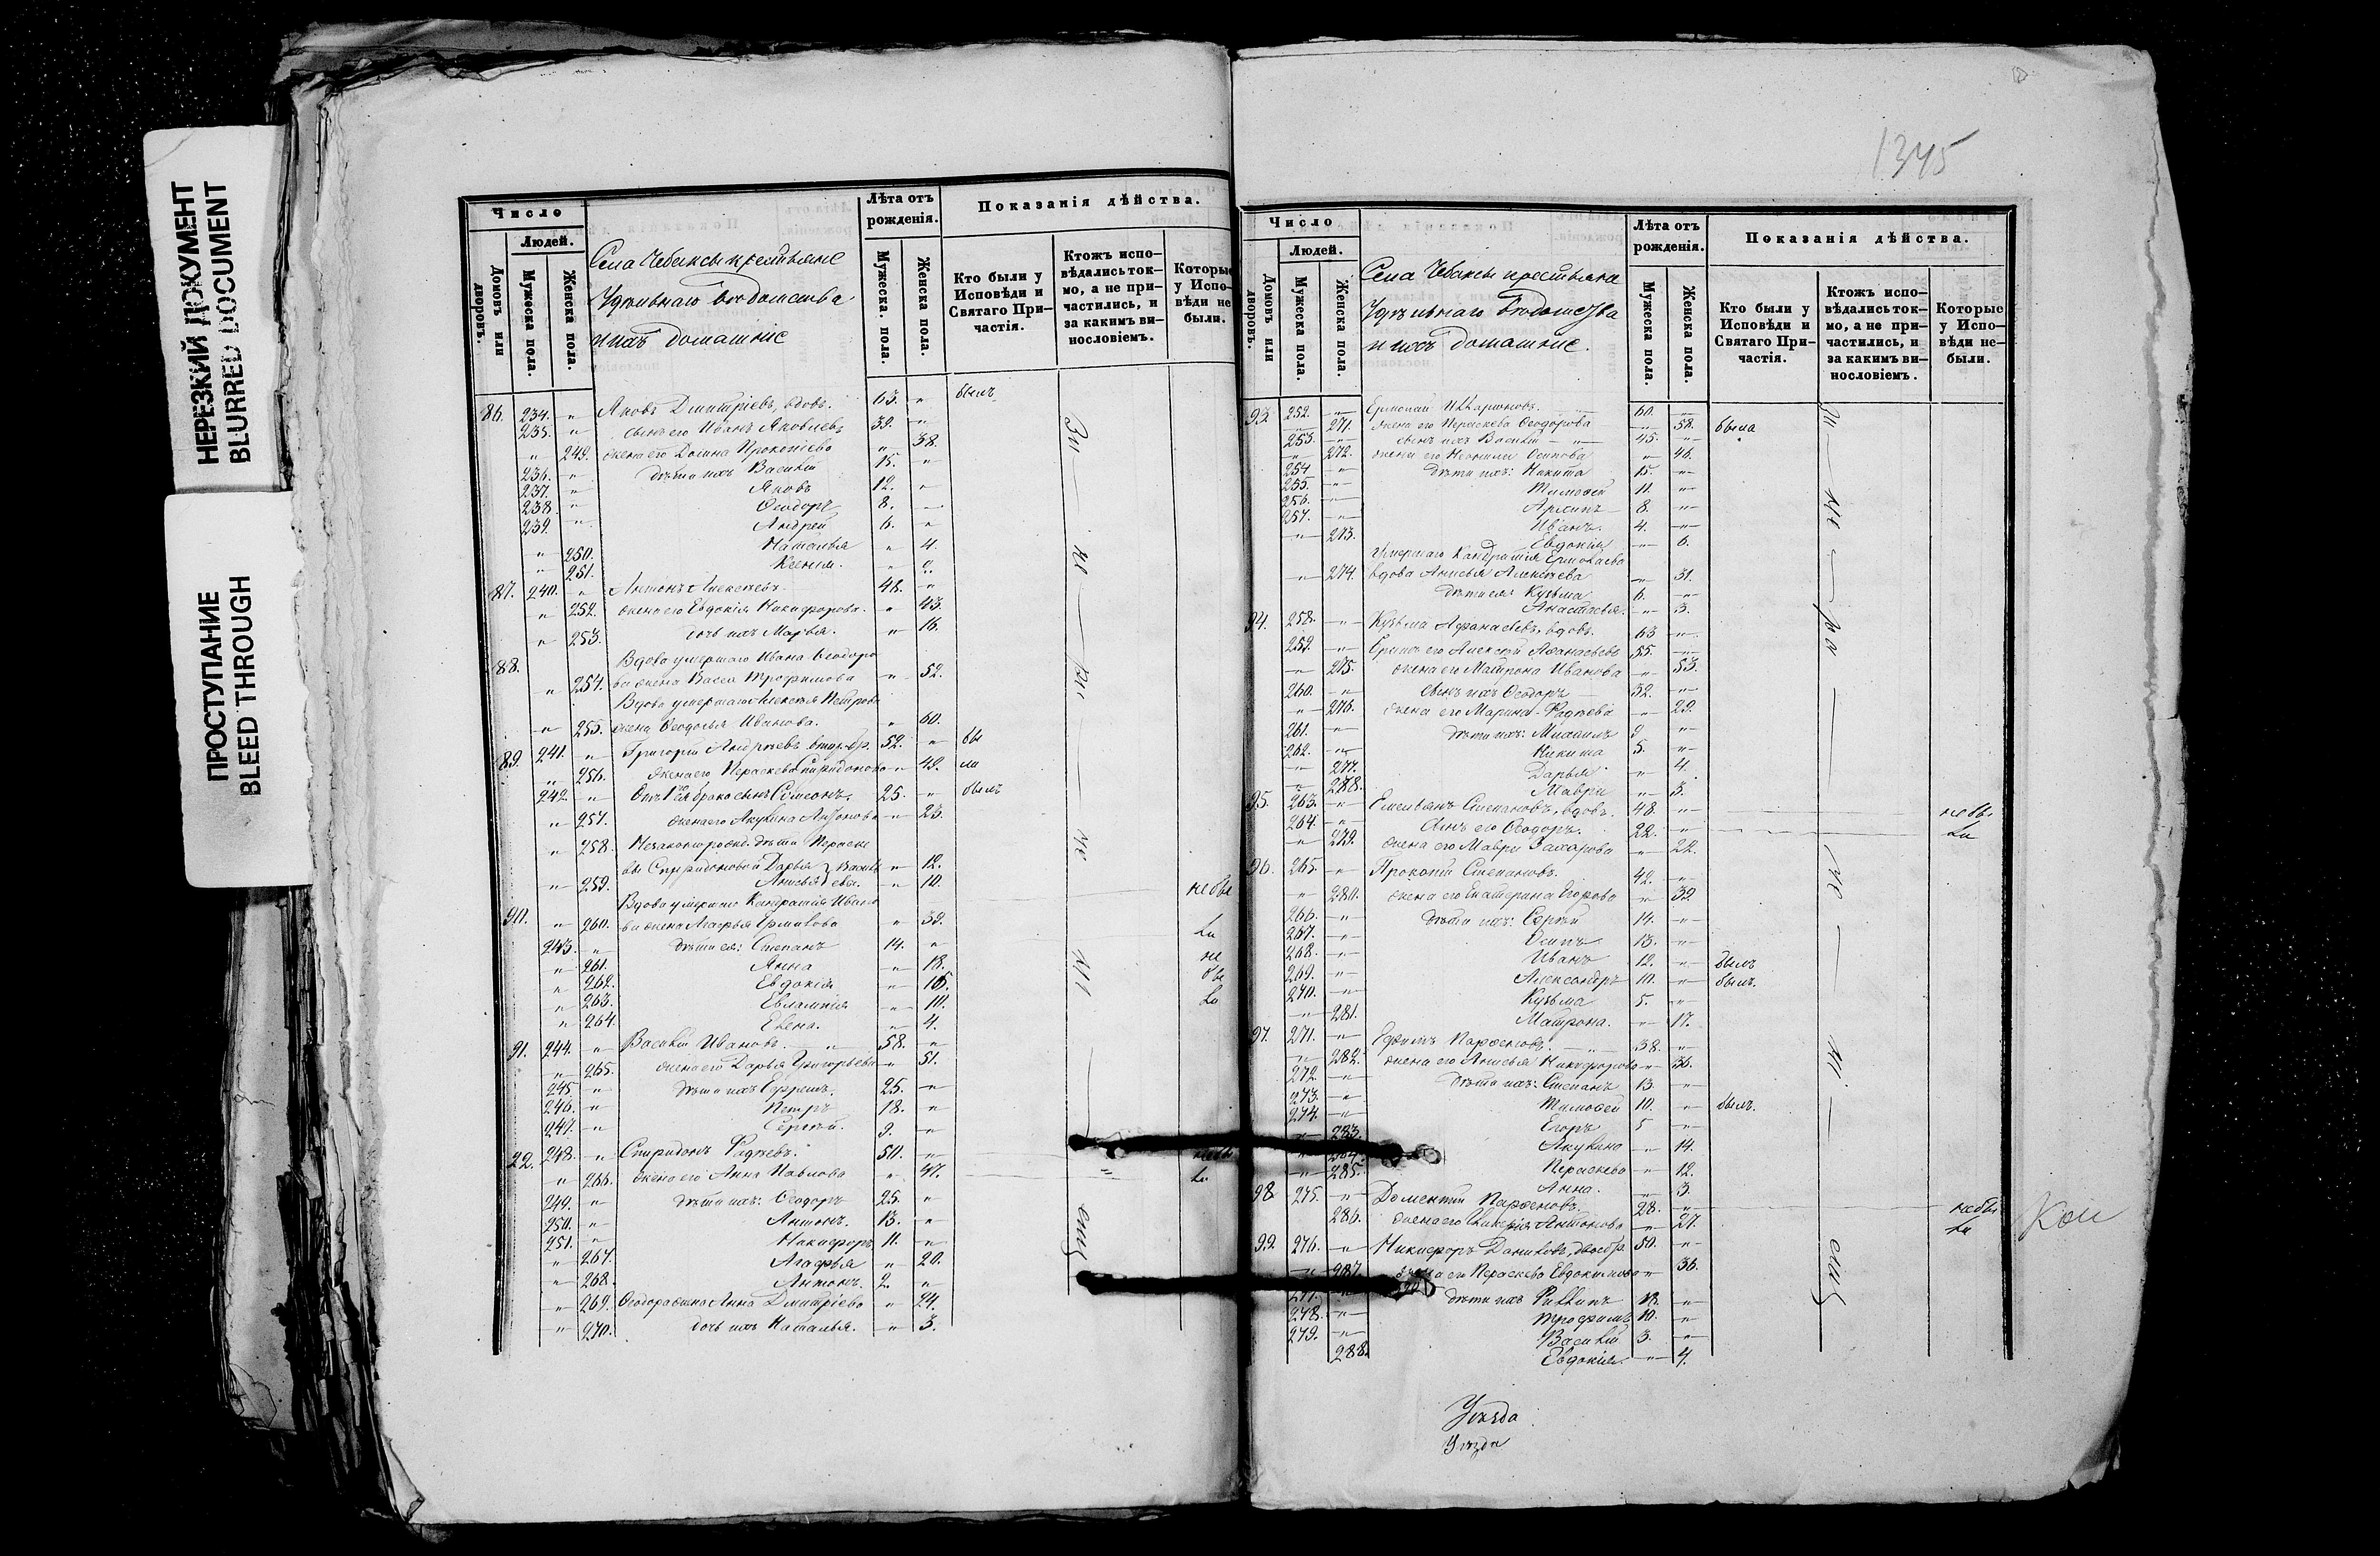 НЕРЕЗКИЙ ДОКУМЕНТ
BLURRED DOCUMENT
ПРОСТУПАНИЕ
BLEED THROUGH
Число
Людей.
Домовъ или дворовъ.
Мужеска пола.
Женска пола.
Села Чебаксы крестьяне
Удѣльнаго вѣдомства
и ихъ домашніе
Лѣта отъ рожденія.
Мужеска пола.
Женска пола.
Показанія дѣйства.
Кто были у Исповѣди и Святаго При-частія.
Ктожъ испо-вѣдались ток-мо, а не при-частились, и за какимъ ви-нословіемъ.
Которые у Испо-вѣди не были.
86. 234. " Яковъ Дмитріевъ, вдовъ. 63. " былъ
235. " сынъ его Иванъ Яковлевъ 39. "
" 249. жена его Домна Прокопіева " 38.
236. " дѣти ихъ Василій 15. "
237. " Яковъ 12. "
238. " Ѳеодоръ 8. "
239. " Андрей 6. "
" 250. Наталья " 4.
" 251. Ксенія. " 2.
87. 240. " Антонъ Алексѣевъ 48. "
" 252. жена его Евдокія Никифорова. " 43.
" 253. дочь ихъ Марья. " 16.
88. Вдова умершаго Ивана Ѳеодоро
" 254. ва жена Васса Трофимова " 52.
Вдова умершаго Алексѣя Петрова
" 255. жена Ѳеодосья Иванова. " 60.
89. 241. " Григорій Андреевъ втор. бр. 52. " бы
" 256. жена его Параскева Спиридонова " 42. ли
242. " Отъ 1го брака сынъ Сѵмеонъ. 25. " былъ
" 257. жена его Акулина Антонова " 23.
" 258. Незаконнорожд. дѣти Параске
вы Спиридоновой Дарья } Василь " 12.
" 259. Анисья } ева. " 10.
Вдова умершаго Кондратія Ивано небы
90. " 260. ва жена Агафья Ермилова " 39. ли
243. " дѣти ея: Степанъ 14. " не
" 261. Анна " 18. бы
" 262. Евдокія " 16. ли
" 263. Евлампія " 10.
" 264. Елена. " 4.
91. 244. " Василій Ивановъ. 58. "
" 265. жена его Дарья Григорьева " 51.
245. " дѣти ихъ Ефремъ. 25. "
246. " Петръ 18. "
247. " Сергѣй. 9. "
92. 248. " Спиридонъ Фадѣевъ. 50. " небы
" 266. жена его Анна Павлова " 47. ли
249. " дѣти ихъ: Ѳеодоръ 25. "
250. " Антонъ. 13. "
251. " Никифоръ 11. "
" 267. Агафья " 20.
" 268. Антонъ. 2. "
" 269. Ѳеодора жена Анна Дмитріева " 24.
" 270. дочь ихъ Наталья. " 3.
1345
Число
Людей.
Домовъ или дворовъ.
Мужеска пола.
Женска пола.
Села Чебаксы крестьяне
Удѣльнаго вѣдомства
и ихъ домашніе.
Лѣта отъ рожденія.
Мужеска пола.
Женска пола.
Показанія дѣйства.
Кто были у Исповѣди и Святаго При-частія.
Ктожъ испо-вѣдались ток-мо, а не при-частились, и за какимъ ви-нословіемъ.
Которые у Испо-вѣди не-были.
93. 252. " Ермолай Илларіоновъ. 60. "
" 271. жена его Параскева Ѳеодорова " 58. была
253. " сынъ ихъ Василій 45. "
" 272. жена его Неонила Осипова " 46.
254. " дѣти ихъ: Никита 15. "
255. " Тимоѳей 11. "
256. " Архипъ 8. "
257. " Иванъ. 4. "
" 273. Евдокія " 6.
Умершаго Кондратія Ермолаева
" 274. вдова Анисья Алексѣева " 31.
дѣти ея: Кузьма 6. "
Анастасья. " 3.
94. 258. " Кузьма Афанасьевъ, вдовъ. 63 "
259. " Братъ его Алексѣй Афанасьевъ 55. "
" 275. жена его Матрона Иванова " 53.
260. " сынъ ихъ Ѳеодоръ 32. "
" 276. жена его Марина Фадѣева " 29.
261. " дѣти ихъ: Михаилъ 9 "
262. " Никита 5. "
" 277. Дарья " 4.
" 278. Мавра " 3.
95. 263. " Емельянъ Степановъ, вдовъ. 48. " небы
264. " сынъ его Ѳеодоръ. 22. " ли
" 279. жена его Мавра Захарова " 22.
96. 265. " Прокопій Степановъ. 42. "
" 280. жена его Екатерина Егорова " 39.
266. " дѣти ихъ: Сергѣй 14. "
267. " Осипъ 13. "
268. " Иванъ 12. " былъ
269. " Александръ 10. " былъ.
270. " Кузьма 5. "
" 281. Матрона. " 17.
97. 271. " Ефимъ Парѳеновъ. 38. "
" 282. жена его Анисья Никифорова " 36.
272. " дѣти ихъ: Степанъ 13. "
273. " Тимоѳей 10. " былъ.
274. " Егоръ 5 "
" 283. Акулина " 14.
" 284. Параскева " 12.
" 285. Анна. " 3.
98 275. " Доментій Парѳеновъ. 28. " небы
286. жена его Антонова " 27. ли
99. 276. " Никифоръ Даниловъ, двоебр. 50. "
" 287. жена его Параскева Евдокимова " 36.
277. " дѣти ихъ Филлипъ 18. "
278. " Трофимъ 10. "
279. " Василій 3. "
288. Евдокія. " 4.
Уѣзда
Уѣзда